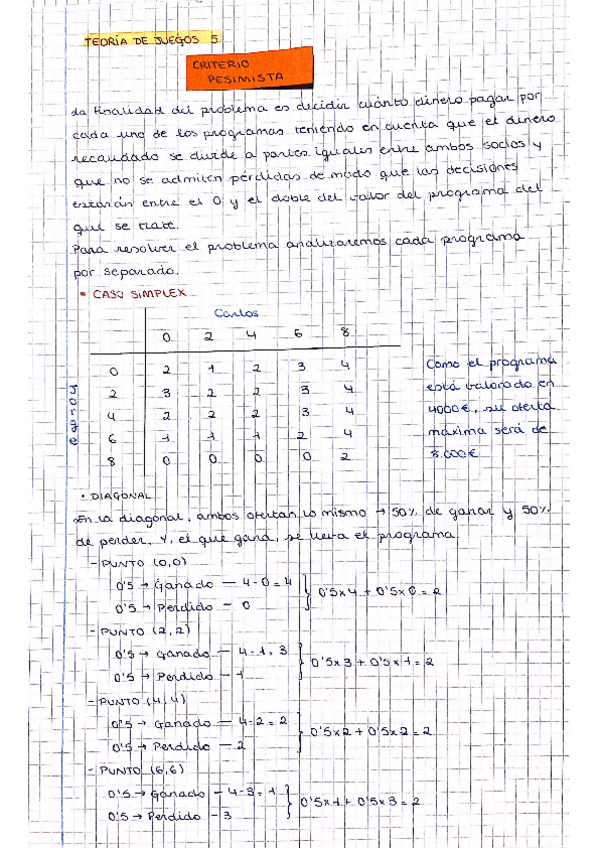 TEORÍA DE JUEGOS 5.
CRITERIO
PESIMISTA
La finalidad del problema es decidir cuánto dinero pagar por
cada uno de los programas teniendo en cuenta que el dinero
recaudado se divide a partes iguales entre ambos socios y
que no se admiten pérdidas de modo que las decisiones
estarán entre el 0 y el doble del valor del programa del
que se trate.
Para resolver el problema analizaremos cada programa
por separado.
• CASO SIMPLEX
Carlos
0 2 4 6 8
Jorge
0 2 1 2 3 4
2 3 2 2 3 4
4 2 2 2 3 4
6 1 1 1 2 4
8 0 0 0 0 2
Como el programa
está valorado en
4000€, su oferta
máxima será de
8.000€
• DIAGONAL
En la diagonal, ambos ofertan lo mismo → 50% de ganar y 50%
de perder. Y, el que gana, se lleva el programa.
- PUNTO (0,0)
0'5 → Ganado — 4-0=4
0'5 → Perdido — 0
0'5x4 + 0'5x0 = 2
- PUNTO (2,2)
0'5 → Ganado — 4-1=3
0'5 → Perdido — 1
0'5x3 + 0'5x1 = 2
- PUNTO (4,4)
0'5 → Ganado — 4-2=2
0'5 → Perdido — 2
0'5x2 + 0'5x2 = 2
- PUNTO (6,6)
0'5 → Ganado — 4-3=1
0'5 → Perdido - 3
0'5x1 + 0'5x3 = 2